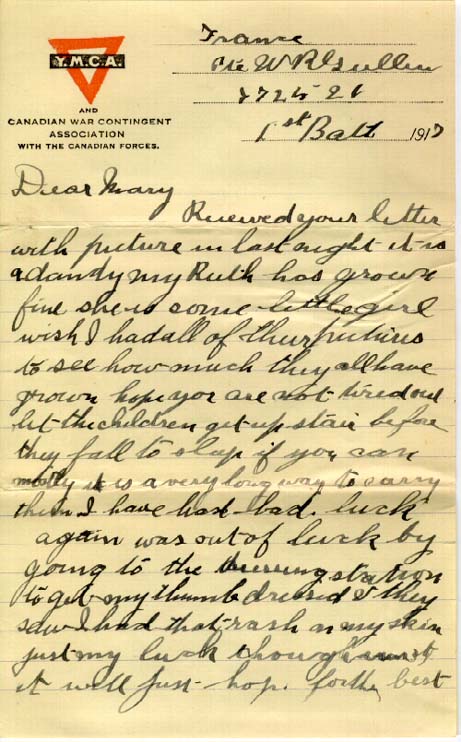 Y.M.C.A.
AND
CANADIAN WAR CONTINGENT
ASSOCIATION
WITH THE CANADIAN FORCES.
France
Pte W R Gullen
1st Batt 1917
Dear Mary
Received your letter
with picture in last night it is
a dandy my Ruth has grown
fine she is some little girl
wish I had all of their pictures
to see how much they all have
grown hope you are not tired out
let the children get up stair before
they fall to sleep if you can
it is a very long way to carry
them I have had bad luck
again was out of luck by
going to the station
to get my thumb dressed & they
saw I had that rash on my skin
just my luck though
it will just hop. for the best